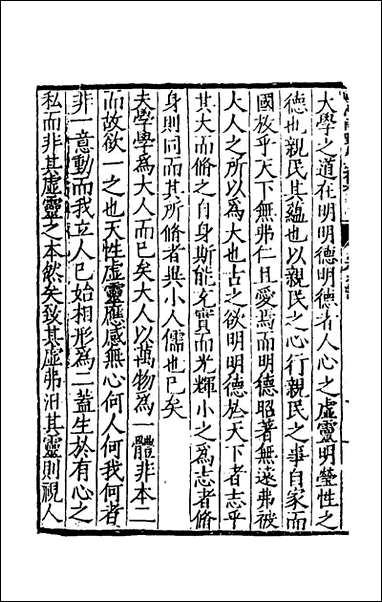 大學之道在明明德明德者人心之虛靈明瑩性之
德也親民其蘊也以親民之心行親民之事自家而
國放乎天下無弗仁且愛焉而明德昭著無遠弗被
大人之所以爲大也古之欲明明德於天下者志乎
其大而脩之自身斯能充實而光輝小之爲志者脩
身則同而其所脩者與小人儒也已矣
夫學學爲大人而已矣大人以萬物爲一體非本二
而故欲一之也天性虛靈應感無心何人何我何者
非一意動而我立人己始相形爲二蓋生於有心之
私而非其虛靈之本然矣致其虛弗汨其靈則視人